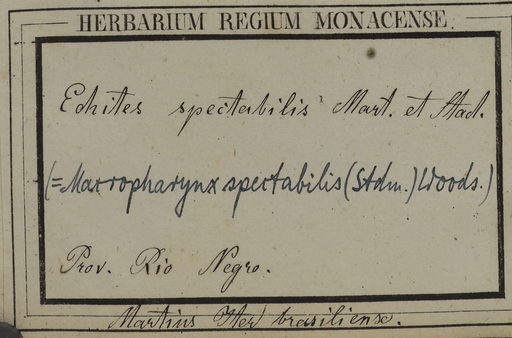 HERBARIUM REGIUM MONACENSE.
Echites spectabilis Mart. et Stad.
(=Macropharynx spectabilis (Stdm.) Woods.)
Prov. Rio Negro.
Martius Iter brasiliense.